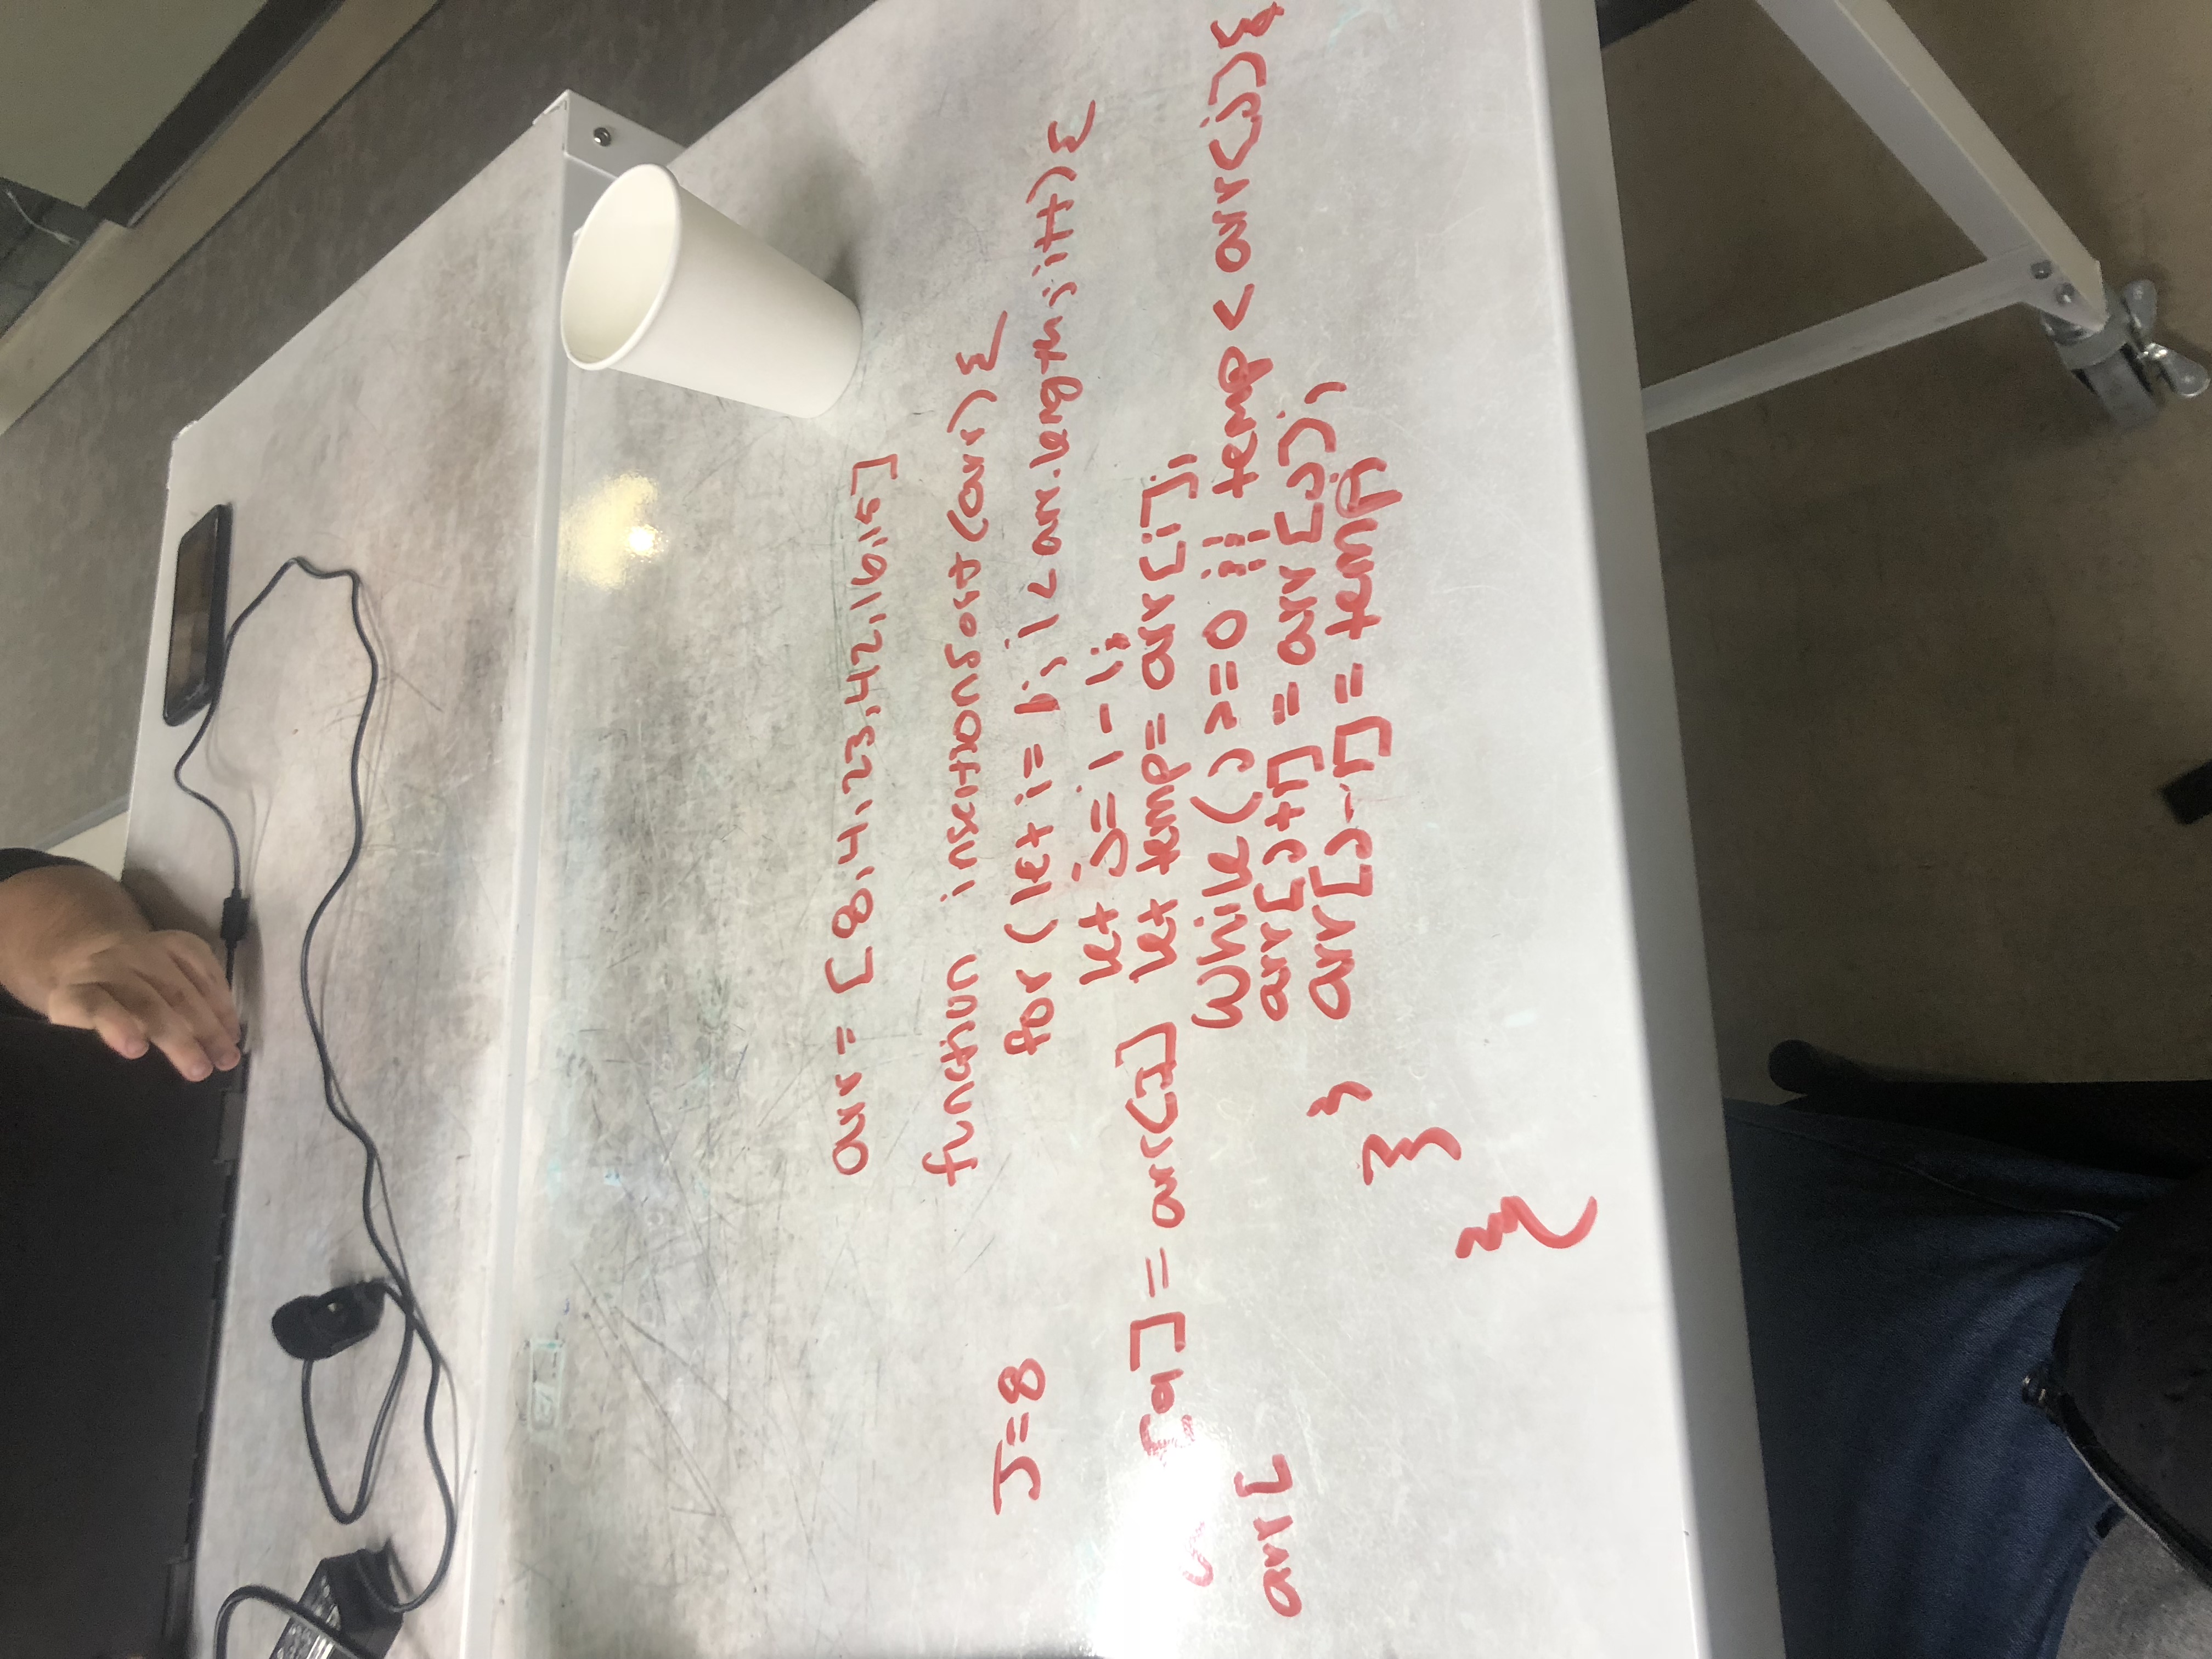 arr = [8,4,23,42,16,15]
function insertionSort(arr){
J=8
for (let i= 1; i < arr.length; i++) {
let j= i - 1;
[a] = arr[J]
let temp= arr[i];
while(j >=0 || temp < arr[j]{
arr[
arr[j+1] = arr[j];
} arr[j-1] = temp;
}
}